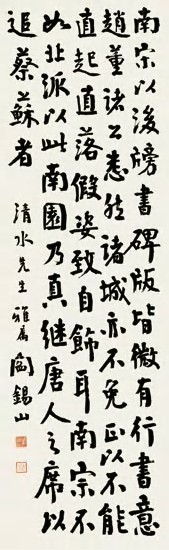 南宋以後牓書碑版皆微有行書意
趙董諸公悉然諸城亦不免正以不能
直起直落假姿致自飾耳南宗不
如北派以此南園乃真継唐人之席以
追蔡蘇者
清水先生雅属
閻錫山